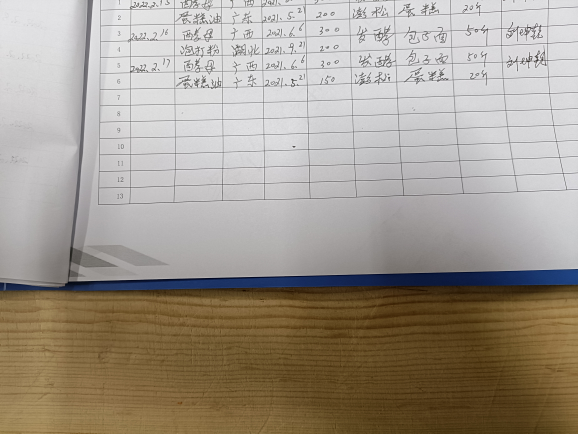 1 2022.2.15 酵母 广西 2021.
2 蛋糕油 广东 2021.5.21 200 澎松 蛋糕 20斤
3 2022.2.16 酵母 广西 2021.6.6 300 发酵 包子面 50斤
4 泡打粉 湖北 2021.9.21 200
5 2022.2.17 酵母 广西 2021.6.6 300 发酵 包子面 50斤
6 蛋糕油 广东 2021.5.21 150 澎松 蛋糕 20斤
7
8
9
10
11
12
13